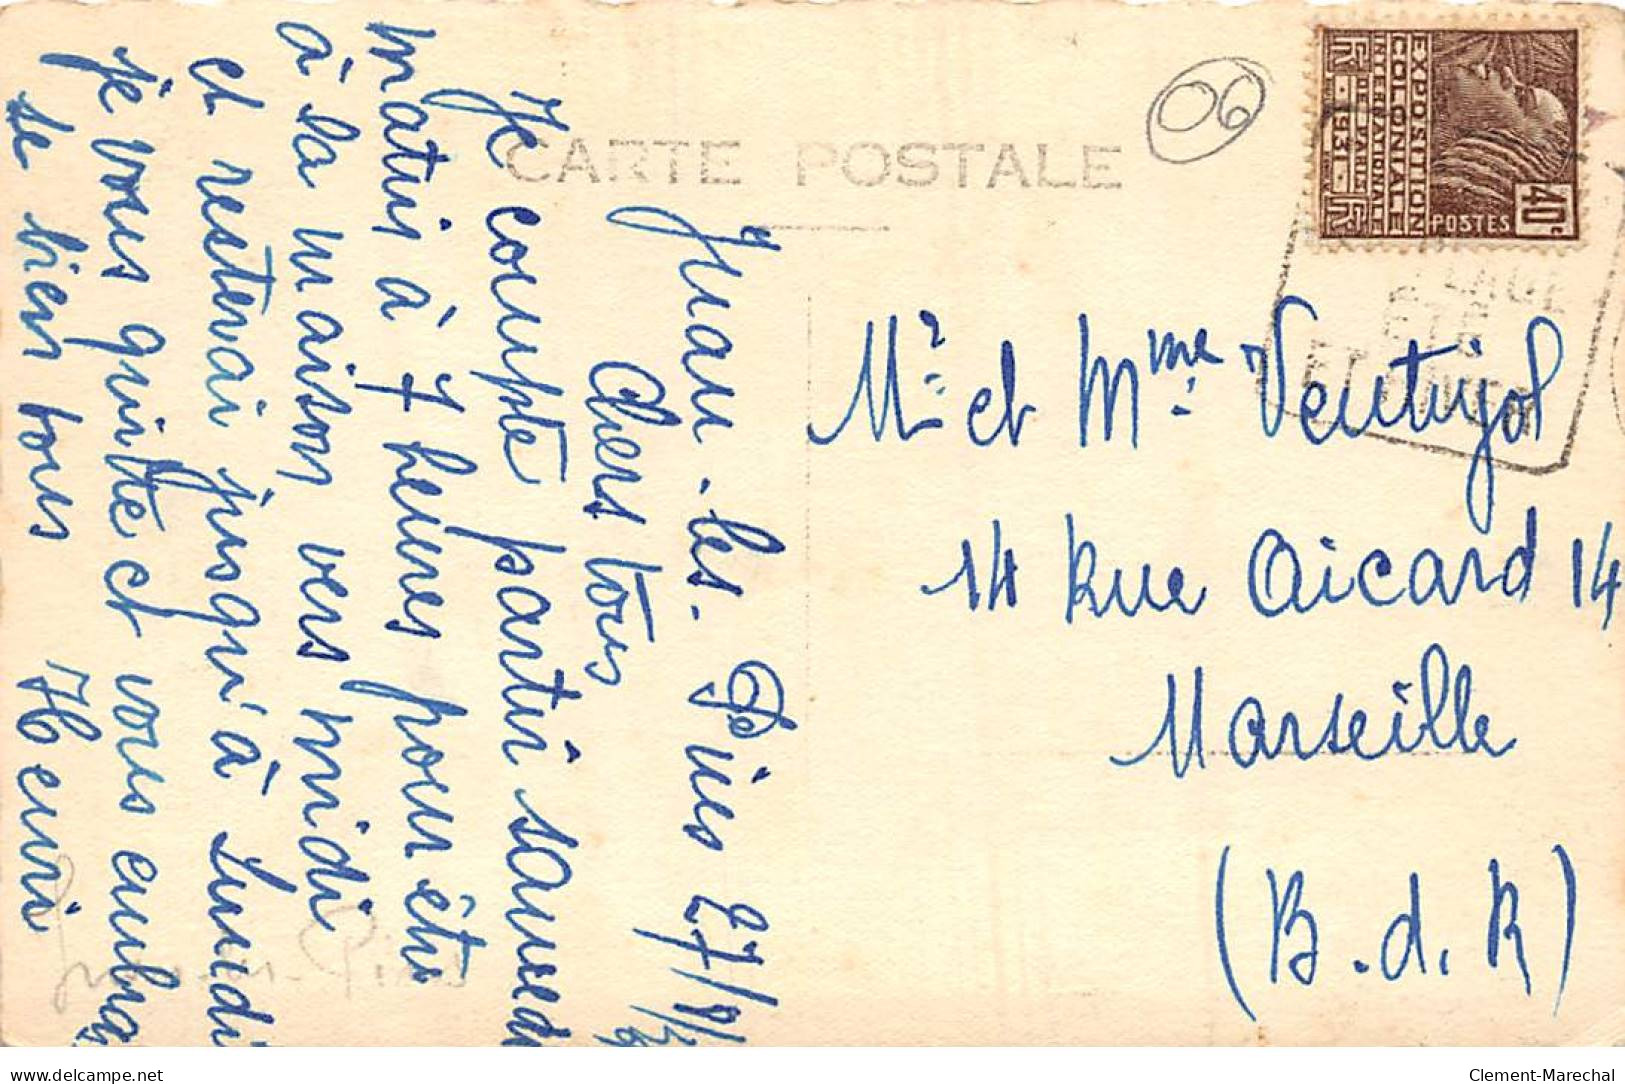 CARTE POSTALE
06
EXPOSITION
COLONIALE
INTERNATIONALE
DE PARIS
RF·1931·RF
POSTES
40c
PLAGE
ETE
ET HIVER
Juan-les-Pins 27/9/3
Chers tous
Je compte partir samedi
matin à 7 heures pour être
à la maison vers midi
et resterai jusqu'à Lundi
je vous quitte et vous embras
se bien tous Henri
Mr et Mme Ventujol
14 Rue Aicard 14
Marseille
(B.d.R)
delcampe.net
Clement-Marechal